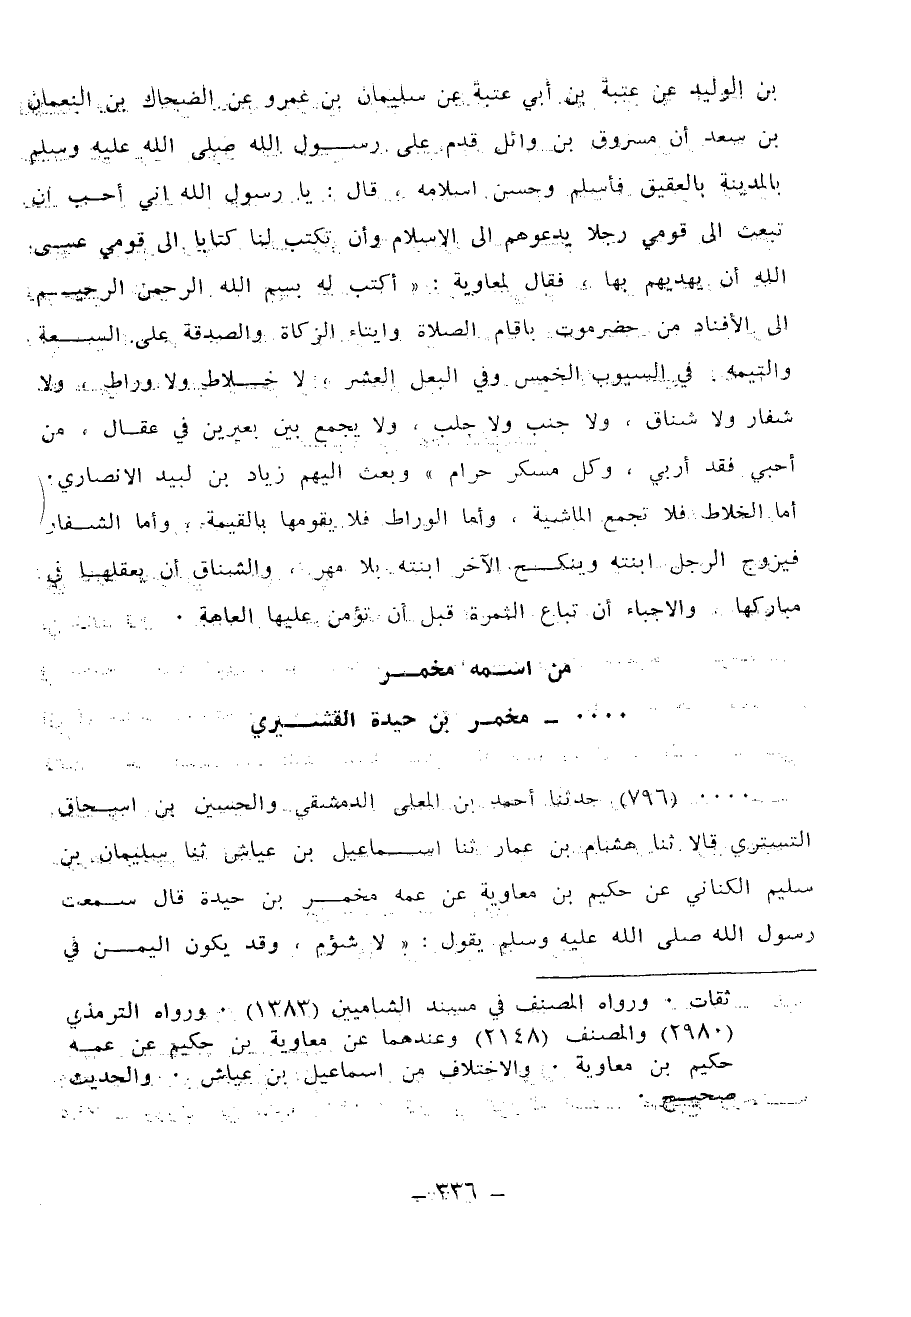 بن الوليد عن عتبة بن أبي عتبة عن سليمان بن عمرو عن الضحاك بن النعمان
بن سعد أن مسروق بن وائل قدم على رسول الله صلى الله عليه وسلم
بالمدينة بالعقيق فأسلم وحسن اسلامه ، قال : يا رسول الله اني أحب ان
تبعث الى قومي رجلا يدعوهم الى الإسلام وأن تكتب لنا كتابا الى قومي عسى
الله أن يهديهم بها ، فقال لمعاوية : « أكتب له بسم الله الرحمن الرحيم
الى الأقناد من حضرموت باقام الصلاة وايتاء الزكاة والصدقة على السيعة
والتيمه . في السيوب الخمس وفي البعل العشر ، لا خلاط ولا وراط ، ولا
شغار ولا شناق ، ولا جنب ولا جلب ، ولا يجمع بين بعيرين في عقال ، من
أجبي فقد أربي ، وكل مسكر حرام » وبعث اليهم زياد بن لبيد الانصاري٠
أما الخلاط فلا تجمع الماشية ، وأما الوراط فلا يقومها بالقيمة ، وأما الشغار
فيزوج الرجل ابنته وينكح الآخر ابنته بلا مهر ، والشناق أن يعقلها في
مباركها ، والاجباء أن تباع الثمرة قبل أن تؤمن عليها العاهة ٠
من اسمه مخمر
٠٠٠٠ ـ مخمر بن حيدة القشيري
٠٠٠٠ (٧٩٦) حدثنا أحمد بن المعلى الدمشقي والحسين بن اسحاق
التستري قالا ثنا هشام بن عمار ثنا اسماعيل بن عياش ثنا سليمان بن
سليم الكناني عن حكيم بن معاوية عن عمه مخمر بن حيدة قال سمعت
رسول الله صلى الله عليه وسلم يقول : « لا شؤم ، وقد يكون اليمن في
ثقات ٠ ورواه المصنف في مسند الشاميين (١٣٨٣) ٠ ورواه الترمذي
(٢٩٨٠) والمصنف (٢١٤٨) وعندهما عن معاوية بن حكيم عن عمه
حكيم بن معاوية ٠ والاختلاف من اسماعيل بن عياش ٠ والحديث
صحيح ٠
ـ ٣٣٦ ـ